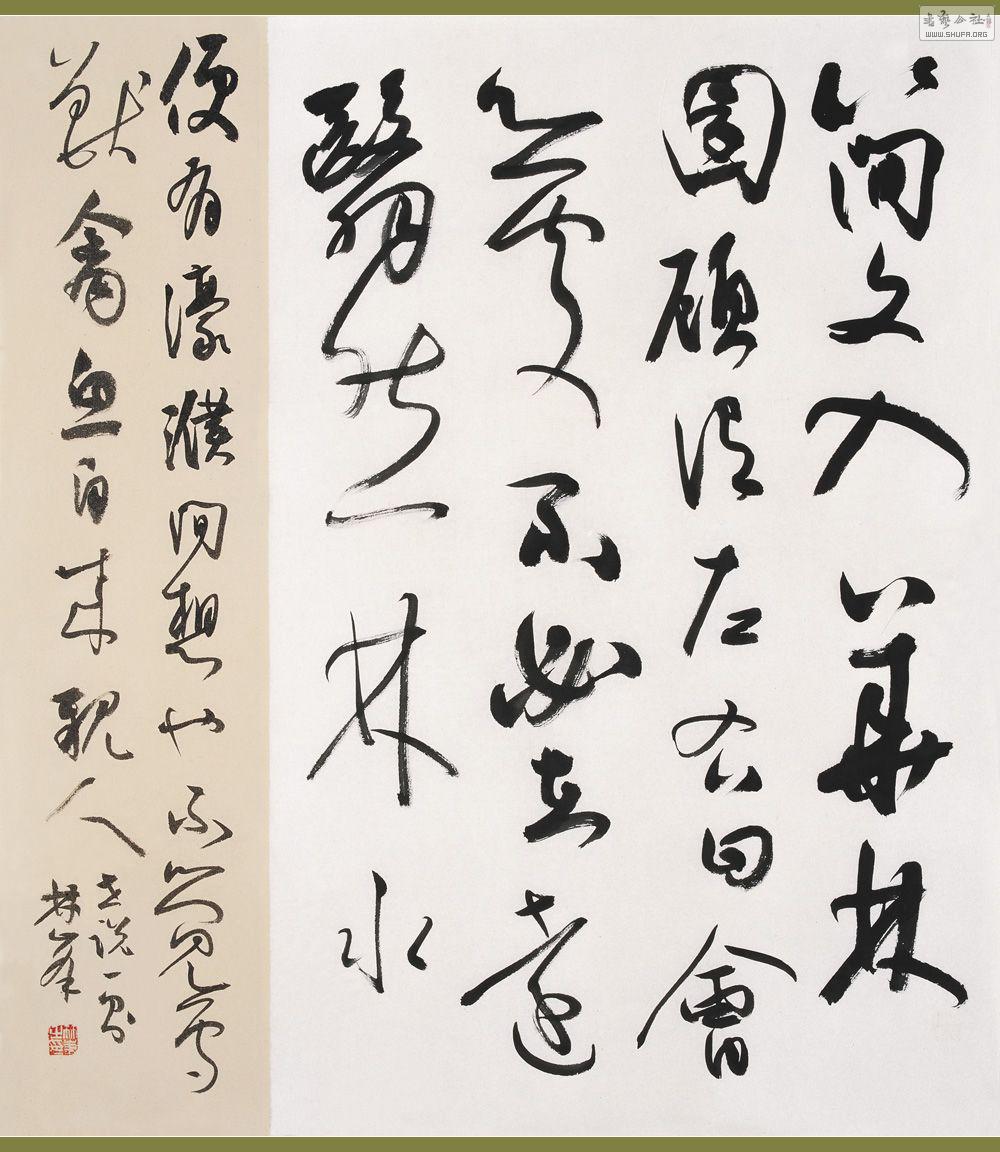 簡文入華林
園顧謂左右曰會
心處不必在遠
翳然林水
便有濠濮間想也不覺鳥
獸禽魚自來親人
世說一則
林峯
書藝公社
WWW.SHUFA.ORG